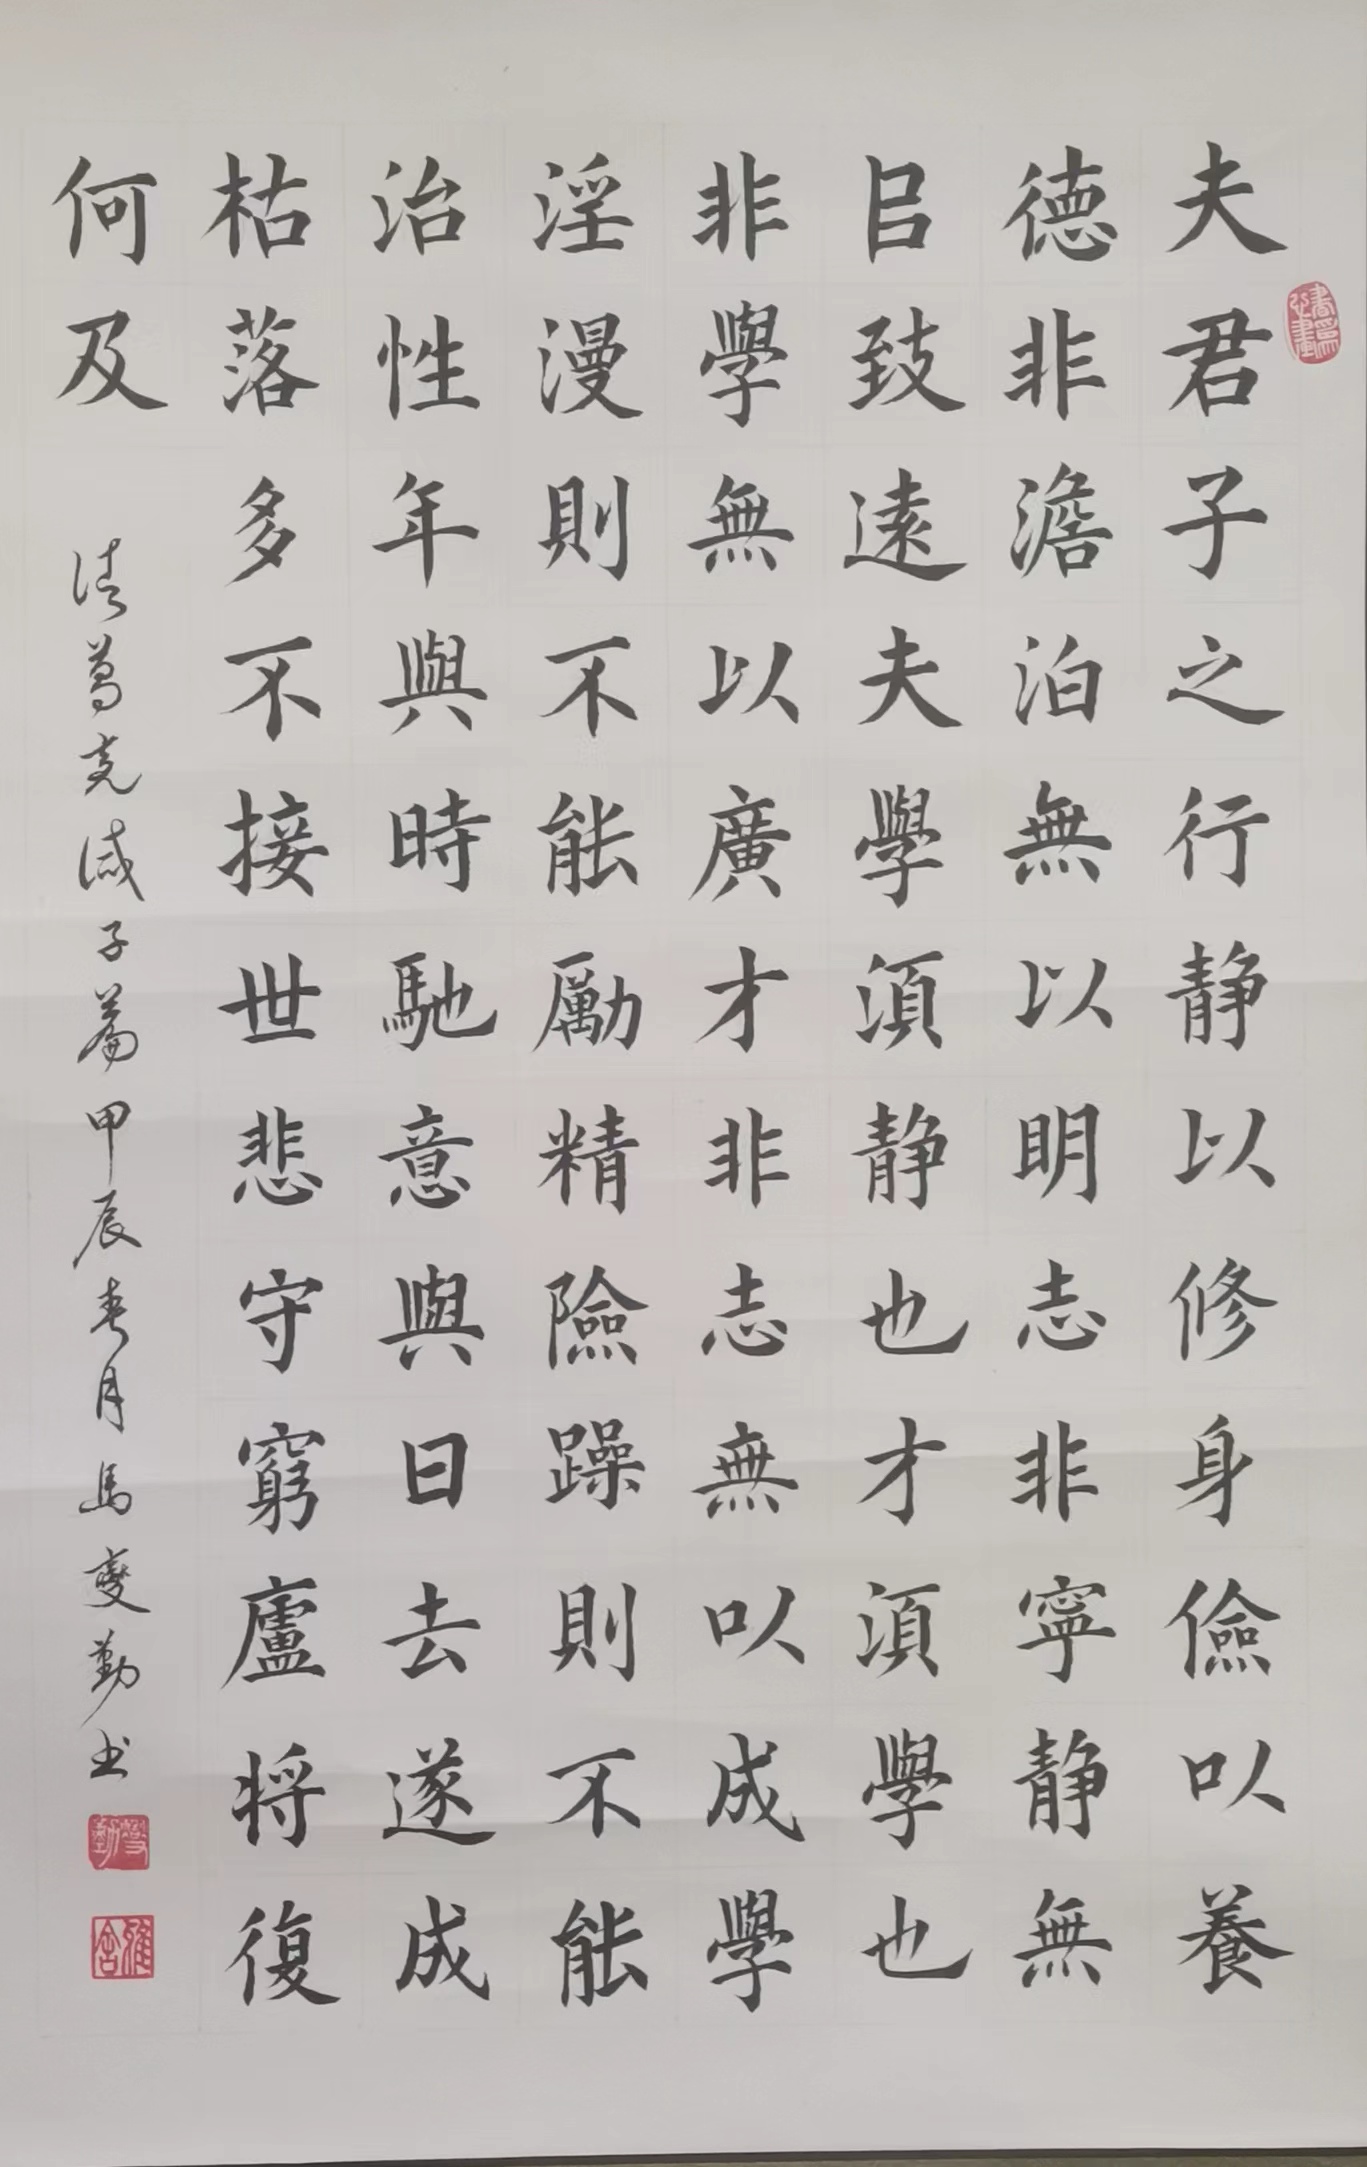 夫君子之行静以修身儉以養
德非澹泊無以明志非寧静無
㠯致遠夫學須静也才須學也
非學無以廣才非志無以成學
淫漫則不能勵精險躁則不能
治性年與時馳意與日去遂成
枯落多不接世悲守窮廬将復
何及
诸葛亮诫子篇甲辰春月馬變勤书
書為心畫